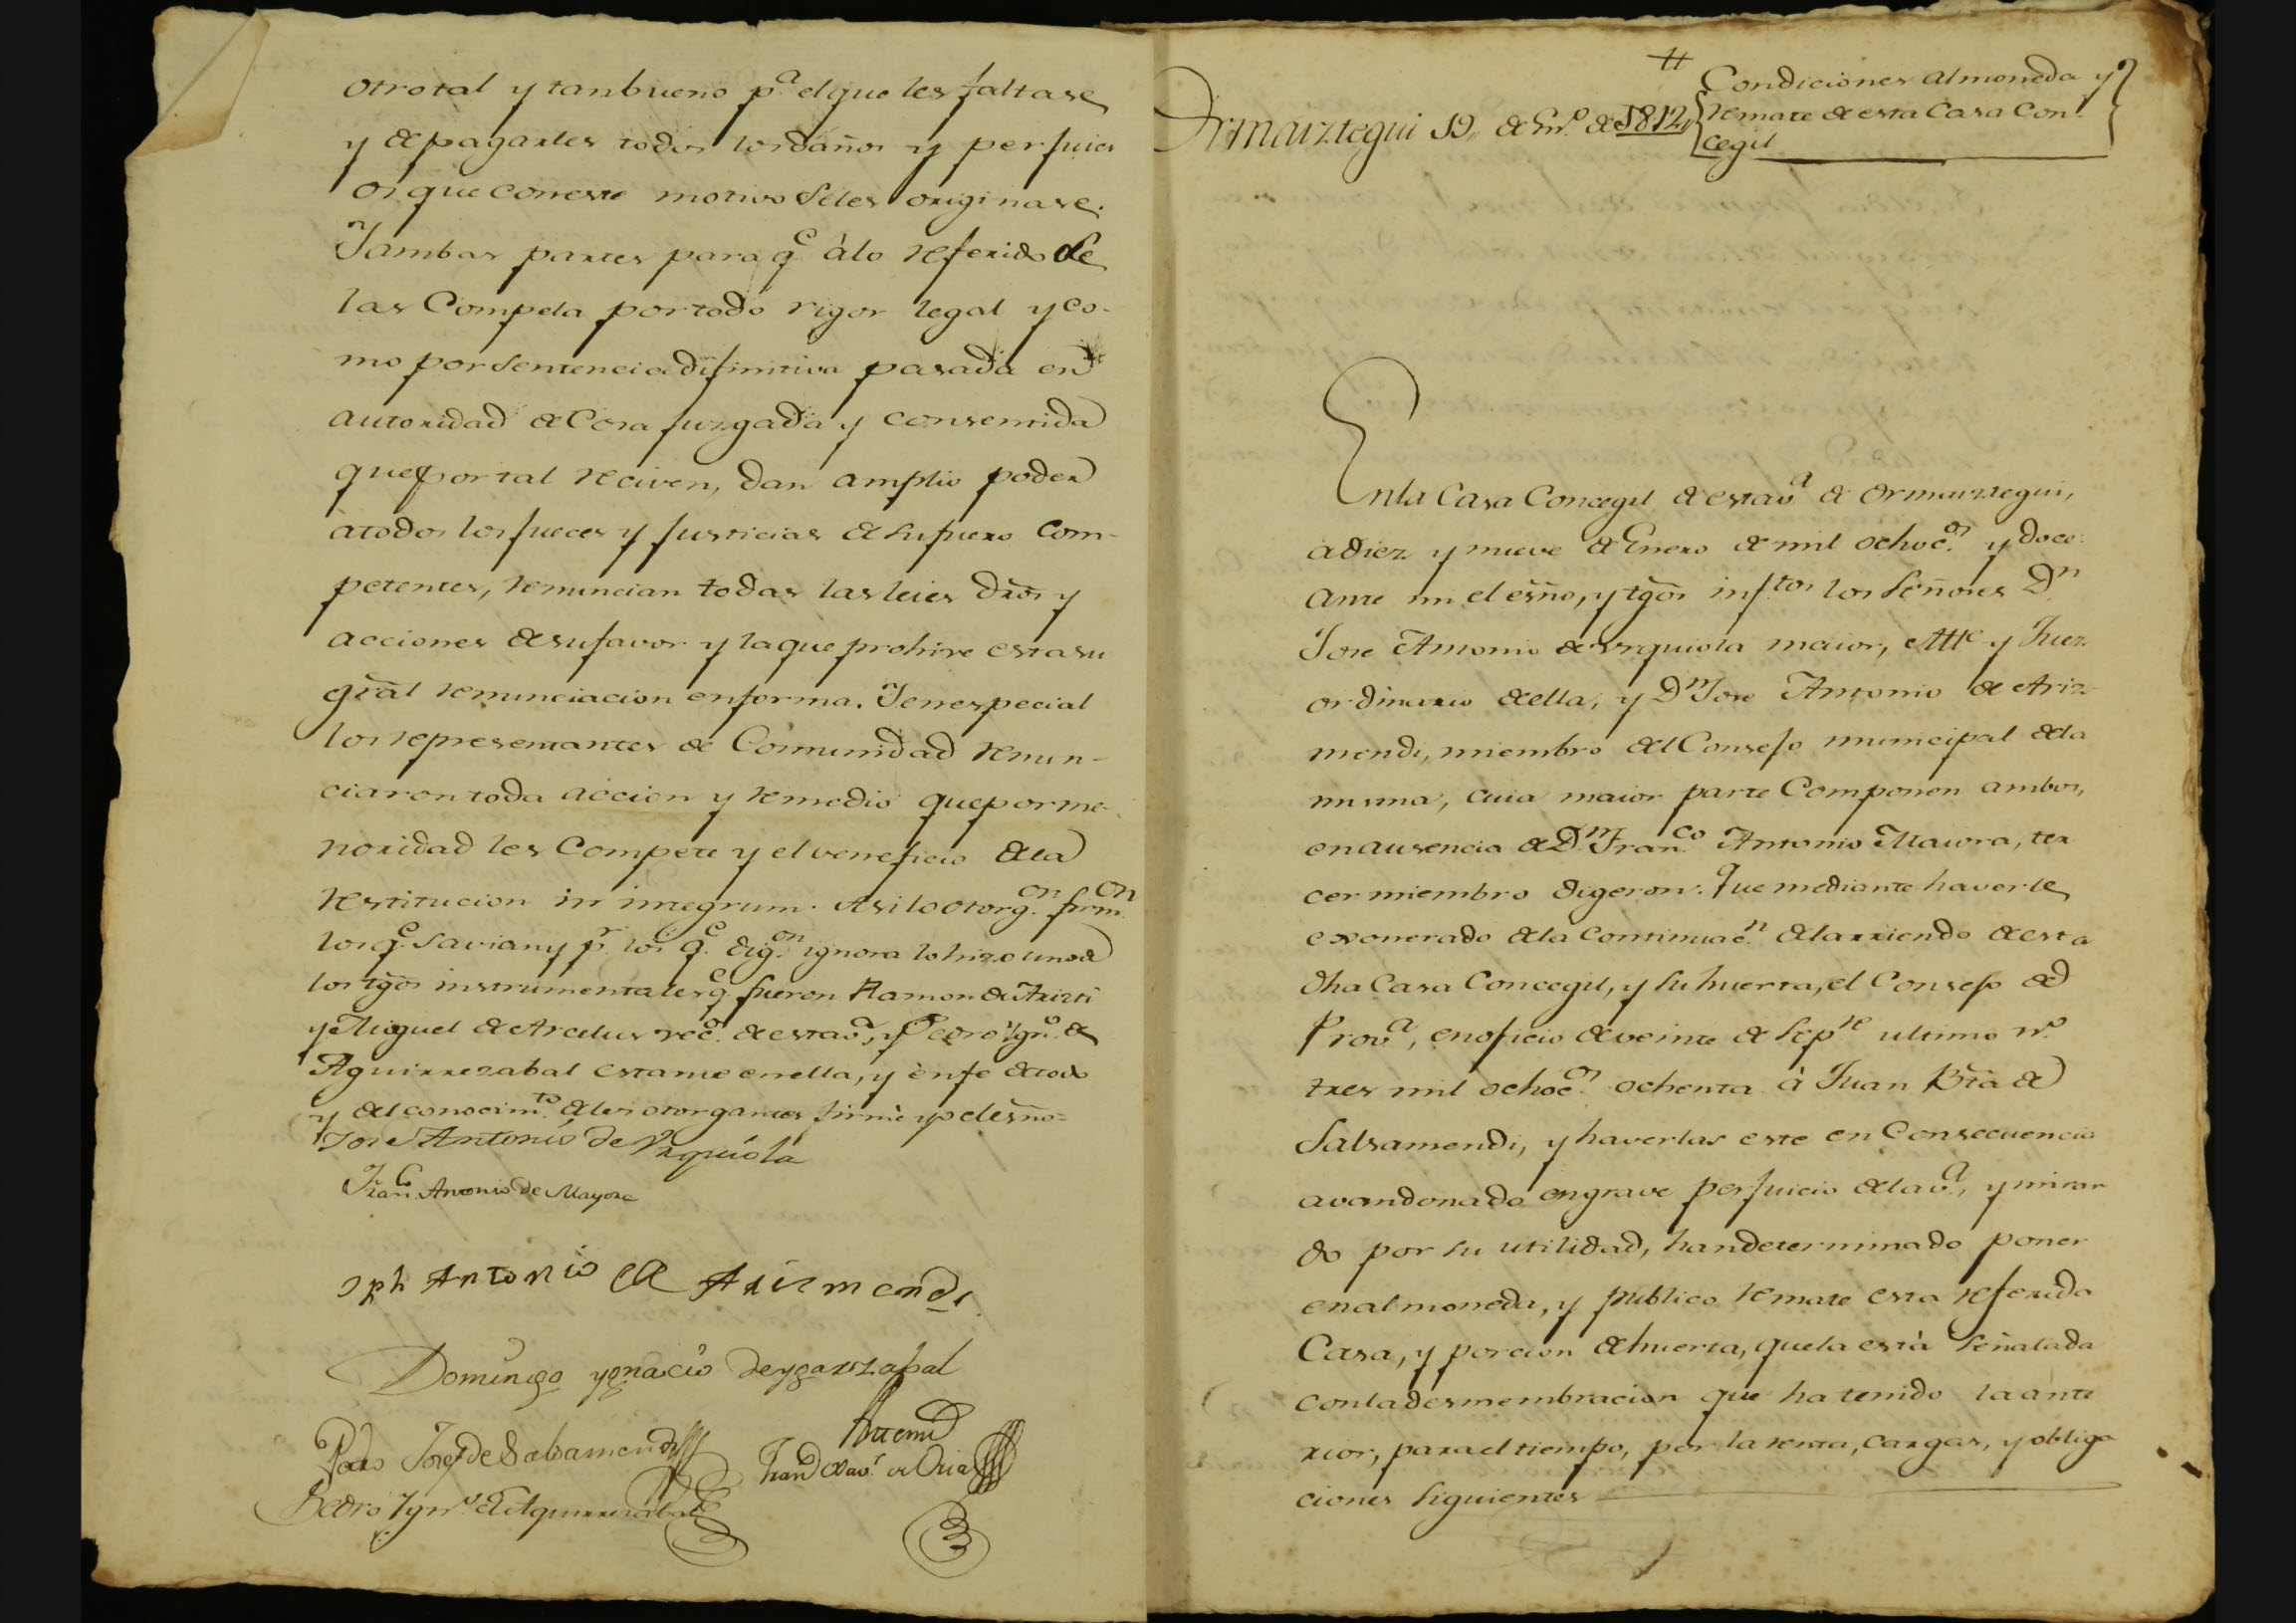 otro tal y tan bueno p.a el que les faltase
y de pagarles todos los daños y perjuici
os que con este motivo se les originase.
Y ambas partes para q.e à lo referido se
las Compela por todo rigor legal y co-
mo por sentencia difinitiva pasada en
autoridad de Cosa juzgada y consentida
que por tal reciven, dan amplio poder
a todos los jueces y justicias de su fuero Com-
petentes, renuncian todas las leies dros y
acciones de su favor y la que prohive esta su
gral renunciacion en forma. Y en especial
los representantes de Comunidad renun-
ciaron toda accion y remedio que por me-
noridad les Compete y el veneficio de la
restitucion in integrum. Asi lo otorg.on firm.on
los q.e savian y p.r los q.e dig.on ignora lo hizo uno de
los tgos instrumentales q.e fueron Ramon de Aristi
y Miguel de Arcelus vec.s de esta v.a, y Pedro Ygn.o de
Aguirrezabal estante en ella, y en fe de todo
y del conocim.to de los otorgantes firmè yo el esno=
Jose Antonio de Urquiola
Fran.co Antonio de Mayora
Jph Antonio de Arizmendi
Domingo ygnacio de ygarzabal
Pedro Jose de Salsamendi
Ante mi
Fran.co Xav.r de Oria
Pedro Ygn.o de Aguirrezabal
Ormaiztegui 19, de En.o de 1812,,
Condiciones almoneda y
remate de esta Casa Con
cegil
En la Casa Concegil de esta v.a de Ormaiztegui,
a diez y nueve de Enero de mil ochoc.os y doce:
ante mi el esno, y tgos inf.tos los Señores D.n
Jose Antonio de Urquiola maior, Alle y Juez
ordinario de ella, y D.n Jose Antonio de Ariz-
mendi, miembro del Consejo municipal de la
misma, cuia maior parte Componen ambos,
en ausencia de D.n Fran.co Antonio Maiora, ter
cer miembro digeron: Que mediante haverle
exonerado de la continuac.n del arriendo de esta
dha Casa Concegil, y su huerta, el Consejo de
Prov.a, en oficio de veinte de Sep.re ultimo n.o
tres mil ochoc.os ochenta à Juan Bta de
Salsamendi, y haverlas este en Consecuencia
avandonado en grave perjuicio de la v.a, y miran
do por su utilidad, han determinado poner
en almoneda, y publico remate esta referida
Casa, y porcion de huerta, que la està señalada
con la desmembracion que ha tenido la ante
rior, para el tiempo, por la renta, cargas, y obliga
ciones siguientes